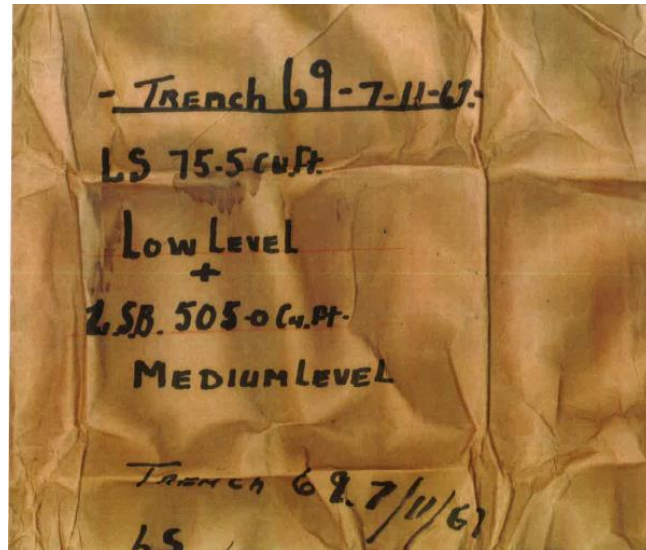 - TRENCH 69-7-11-67.-
LS 75.5 cu.ft.
LOW LEVEL
+
L.S.B. 505-0 Cu.Ft.
MEDIUM LEVEL
TRENCH 69. 7/11/67
LS